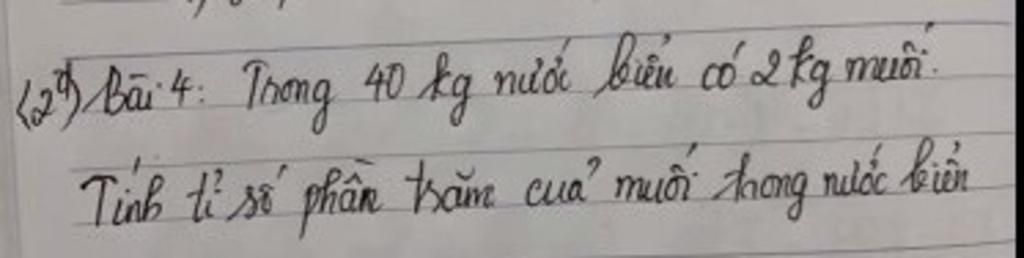 (2đ) Bài 4: Trong 40 kg nước biển có 2 kg muối.
Tính tỉ số phần trăm của muối trong nước biển